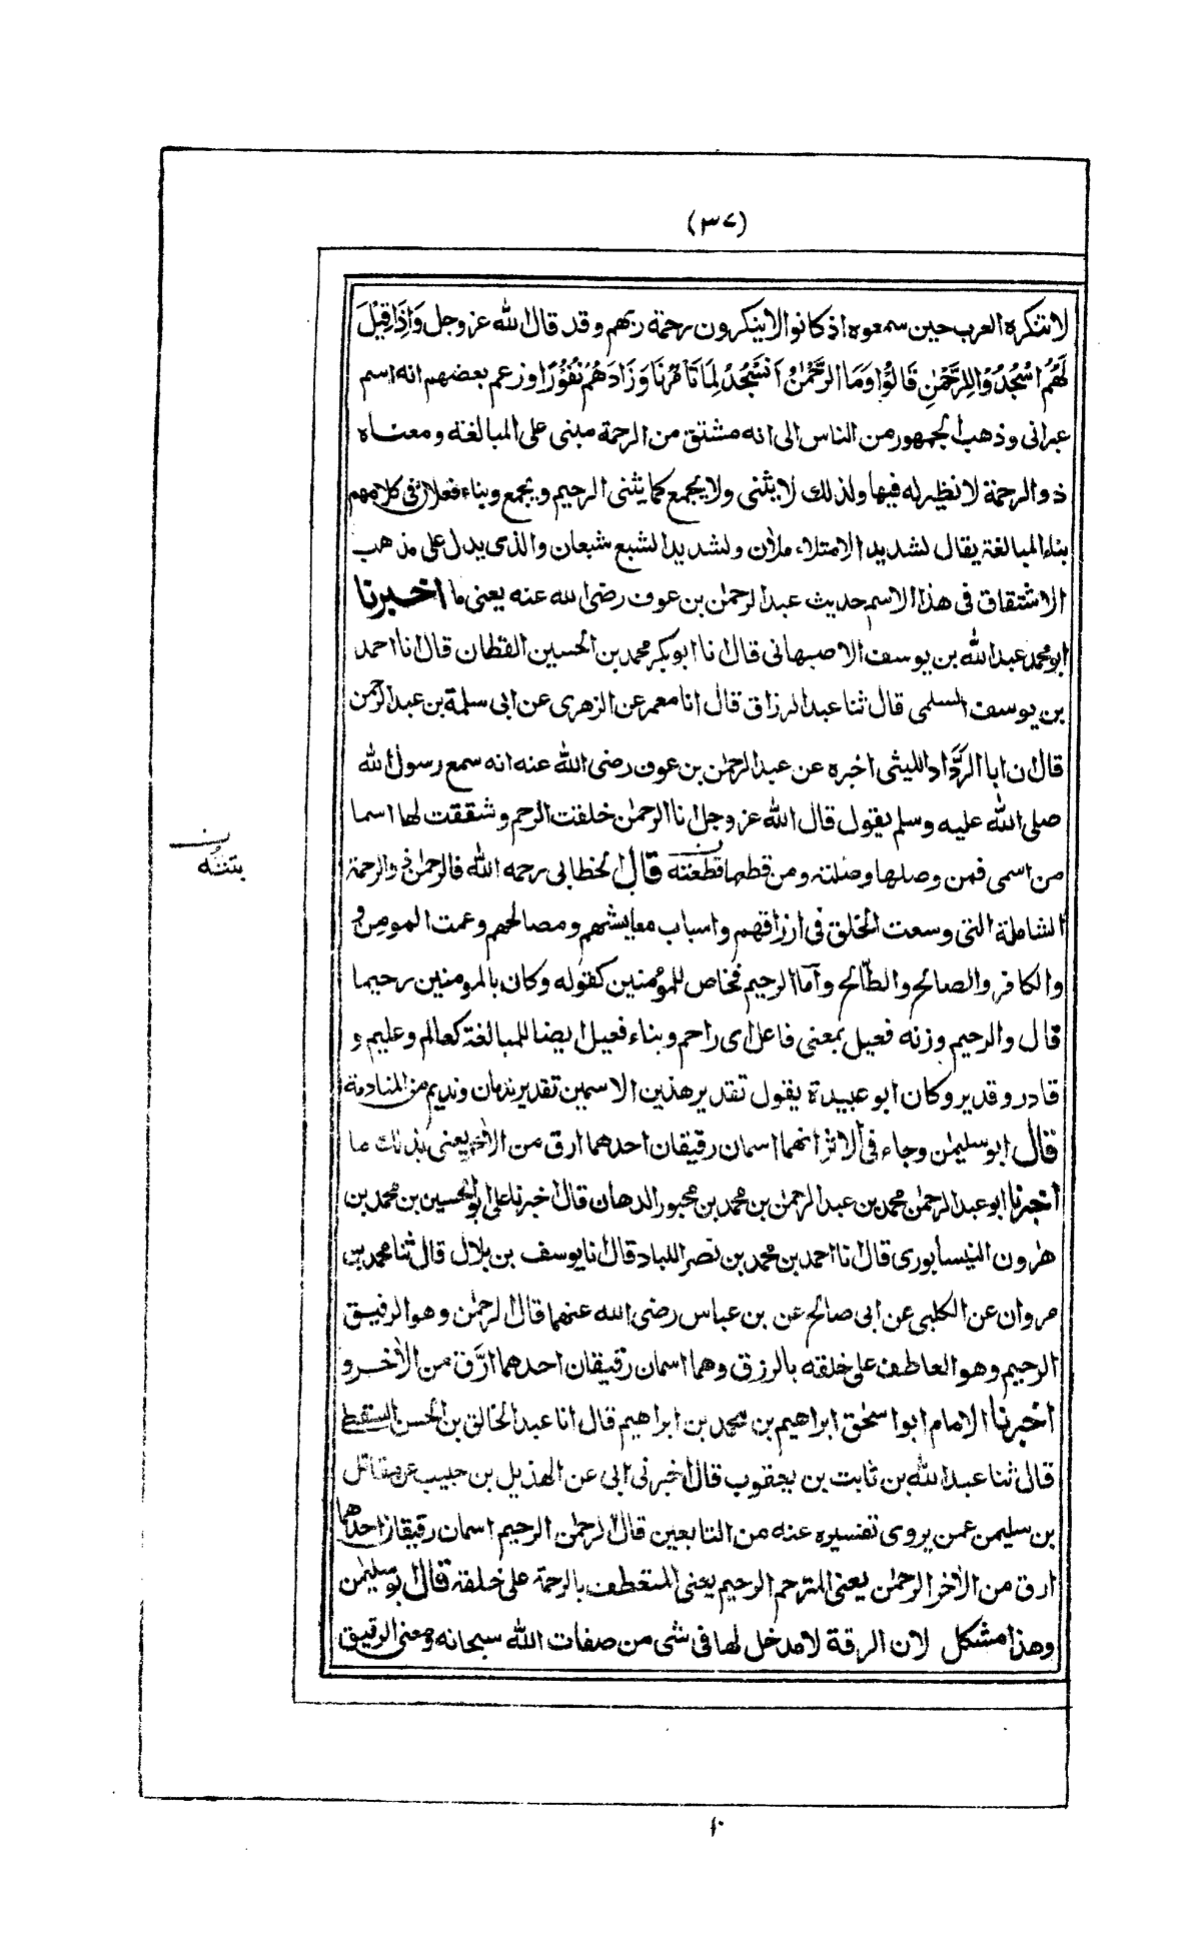 (٣٧)
لا تنكره العرب حين سمعوه اذ كانوا لا ينكرون رحمة ربهم وقد قال الله عز وجل وَاِذَا قِيْلَ
لَهُمُ اسْجُدُوْا لِلرَّحْمٰنِ قَالُوْا وَمَا الرَّحْمٰنُ اَنَسْجُدُ لِمَا تَاْمُرُنَا وَزَادَهُمْ نُفُوْرًا وزعم بعضهم انه اسم
عبرانى وذهب الجمهور من الناس الى انه مشتق من الرحمة مبنى على المبالغة ومعناه
ذو الرحمة لا نظير له فيها ولذلك لا يثنى ولا يجمع كما يثنى الرحيم ويجمع وبناء فعلان فى كلامهم
بناء المبالغة يقال لشديد الامتلاء ملأن ولشديد الشبع شبعان والذى يدل على مذهب
الاشتقاق فى هذا الاسم حديث عبد الرحمٰن بن عوف رضى الله عنه يعنى ما اخبرنا
ابو محمد عبد الله بن يوسف الاصبهانى قال انا ابو بكر محمد بن الحسين القطان قال انا احمد
بن يوسف السلمى قال ثنا عبد الرزاق قال انا معمر عن الزهرى عن ابى سلمة بن عبد الرحمن
قال ان ابا الرَّدَّاد الليثى اخبره عن عبد الرحمٰن بن عوف رضى الله عنه انه سمع رسول الله
صلى الله عليه وسلم يقول قال الله عز وجل انا الرحمٰن خلقت الرحم وشققت لها اسما
من اسمى فمن وصلها وصلته ومن قطعها قطعته قال الخطابى رحمه الله فالرحمٰن ذو الرحمة
بتته
الشاملة التى وسعت الخلق فى ارزاقهم واسباب معايشهم ومصالحهم وعمت المومن و
والكافر والصالح والطالح وأما الرحيم فخاص للمؤمنين كقوله وكان بالمومنين رحيما
قال والرحيم وزنه فعيل بمعنى فاعل اى راحم وبناء فعيل ايضا للمبالغة كعالم وعليم و
قادر وقدير وكان ابو عبيدة يقول تقدير هذين الاسمين تقدير ندمان ونديم من المنادمة
قال ابو سليمٰن وجاء فى الاثر انهما اسمان رقيقان احدهما ارق من الأخر يعنى بذلك ما
اخبرنا ابو عبد الرحمٰن محمد بن عبد الرحمٰن بن محمد بن محبور الدهان قال اخبرنا على ابو الحسين بن محمد بن
هٰرون النيسابورى قال نا احمد بن محمد بن نصر اللباد قال انا يوسف بن بلال قال ثنا محمد بن
مروان عن الكلبى عن ابى صالح عن بن عباس رضى الله عنهما قال الرحمٰن وهو الرفيق
الرحيم وهو العاطف على خلقه بالرزق وهما اسمان رقيقان احدهما ارَّق من الأخر و
اخبرنا الامام ابو اسحٰق ابراهيم بن محمد بن ابراهيم قال انا عبد الخالق بن الحسن السقطى
قال ثنا عبد الله بن ثابت بن يعقوب قال اخبرنى ابى عن الهذيل بن حبيب عن مقاتل
بن سليمن عمن يروى تفسيره عنه من التابعين قال الرحمٰن الرحيم اسمان رقيقان احدهما
ارق من الأخر الرحمٰن يعنى المترحم الرحيم يعنى المتعطف بالرحمة على خلقه قال ابو سليمٰن
وهذا مشكل لان الرقة لا مدخل لها فى شى من صفات الله سبحانه ومعنى الرقيق